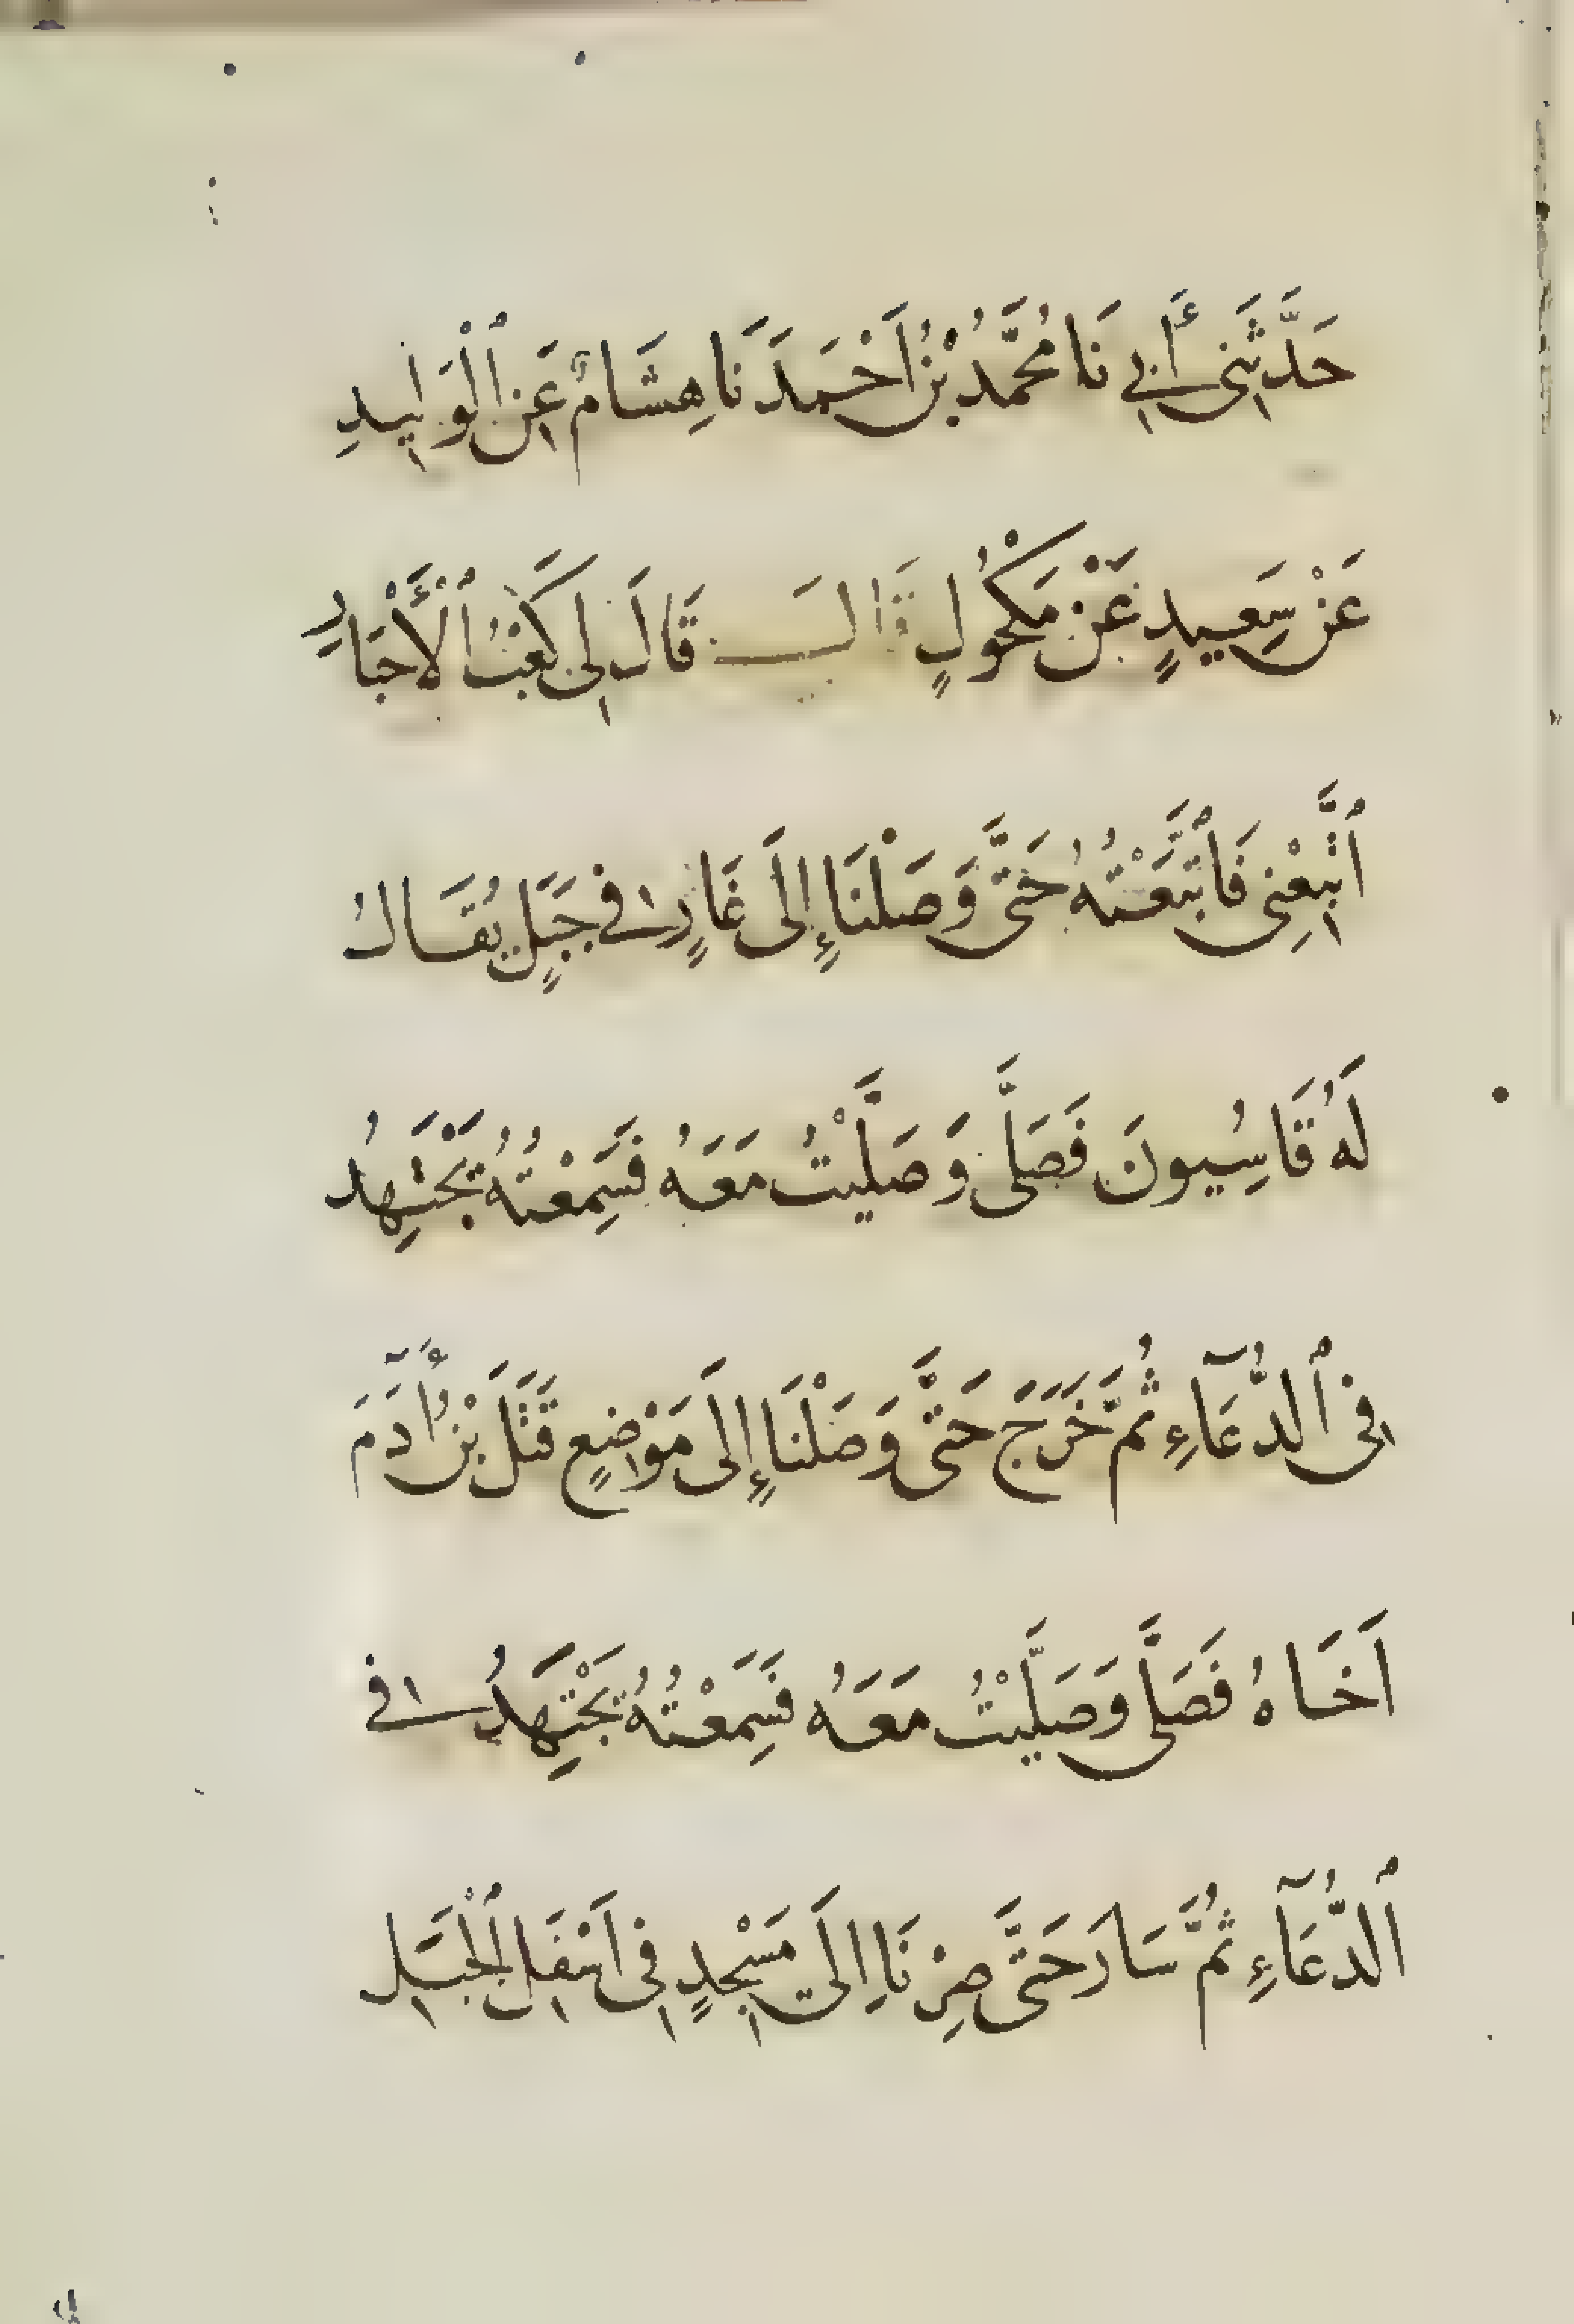 حَدَّثَنِي أَبِي نَا مُحَمَّدُ بْنُ اَحْمَدَ نَا هِشَامٌ عَنِ ٱلْوَلِيدِ
عَنْ سَعِيدٍ عَنْ مَكْحُولٍ قَالَ قَالَ لِي كَعْبُ ٱلْأَحْبَارِ
ٱتَّبِعْنِي فَٱتَّبَعْتُهُ حَتَّى وَصَلْنَا إِلَى غَارٍ فِي جَبَلٍ يُقَالُ
لَهُ قَاسِيُونَ فَصَلَّى وَصَلَّيْتُ مَعَهُ فَسَمِعْتُهُ يَجْتَهِدُ
فِي ٱلدُّعَآءِ ثُمَّ خَرَجَ حَتَّى وَصَلْنَا إِلَى مَوْضِعٍ قَتَلَ بْنُ أٓدَمَ
اَخَاهُ فَصَلَّى وَصَلَّيْتُ مَعَهُ فَسَمِعْتُهُ يَجْتَهِدُ فِي
ٱلدُّعَآءِ ثُمَّ سَارَ حَتَّى صِرْنَا اِلَى مَسْجِدٍ فِي اَسْفَلِ ٱلْجَبَلِ